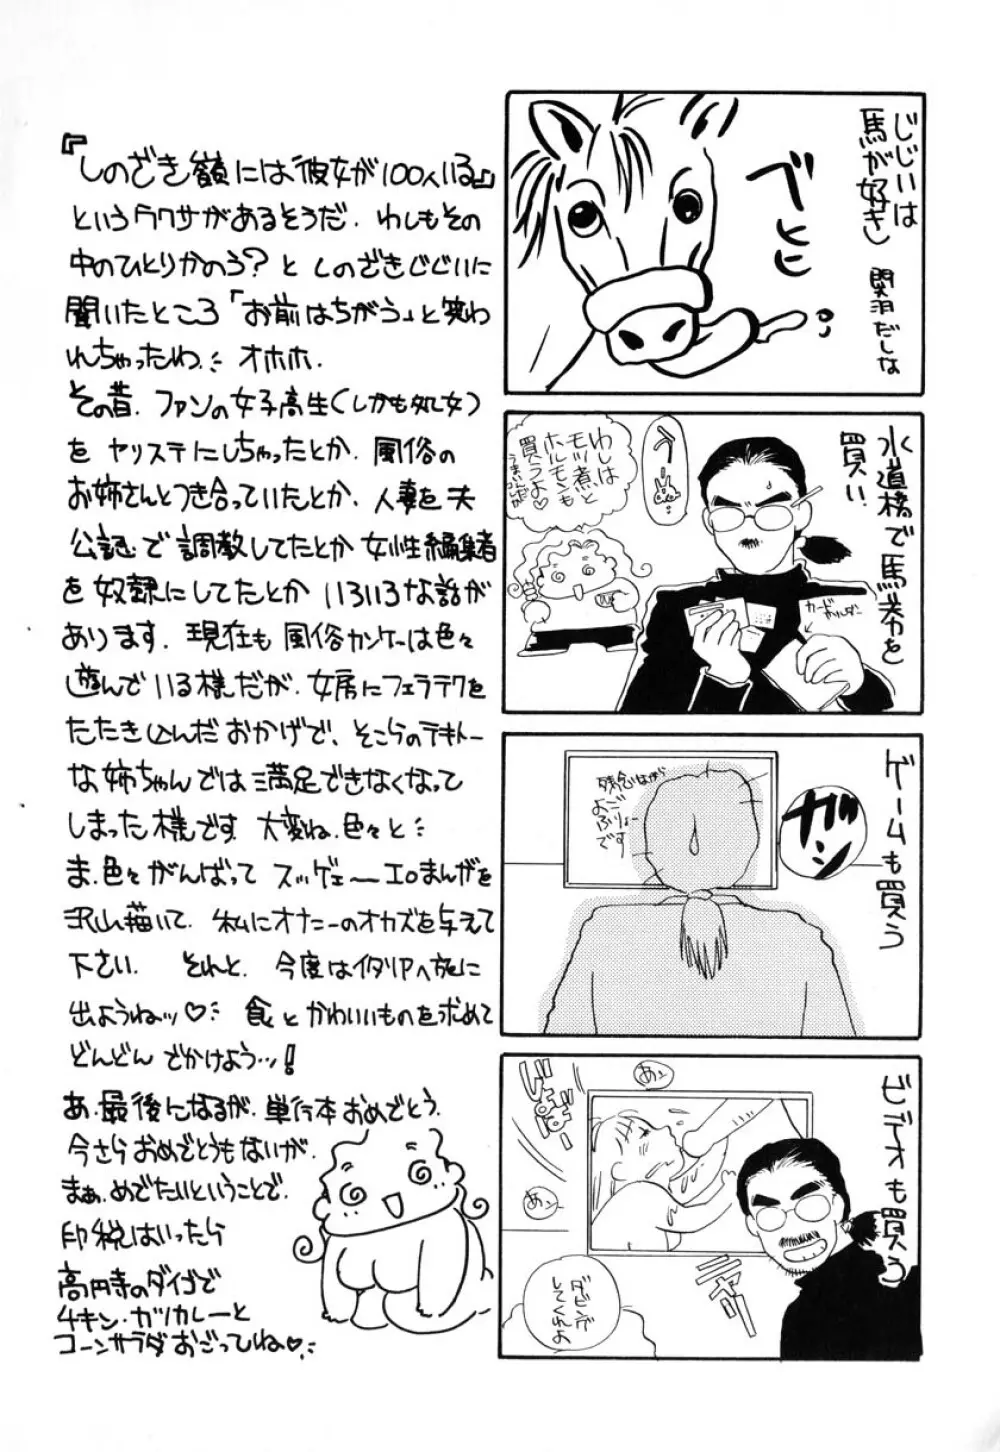 じじいは
馬が好き
関羽だしな
べ
ヒヒ
水道橋で馬券を
買い
カード
ホルダー
わしは
モツ煮と
ホルモンも
買うよ♡
うまいんだが
ゲームも買う
ガーン
残念ながら
よご
ぶりょー
です
ビデオも買う
あン
あン
ダビング
してくれよ
『しのざき嶺には彼女が100人いる』
というウワサがあるそうだ. わしもその
中のひとりかのう? と しのざきじじいに
聞いたところ「お前はちがう」と笑わ
れちゃったわ. オホホ.
その昔. ファンの女子高生(しかも処女)
を ヤリステにしちゃったとか. 風俗の
お姉さんとつき合っていたとか. 人妻を夫
公認で調教してたとか 女性編集者
を奴隷にしてたとか いろいろな話が
あります. 現在も 風俗カンケーは色々
遊んでいる様だが. 女房にフェラテクを
たたき込んだおかげで、そこらのテキトー
な姉ちゃんでは満足できなくなって
しまった様です. 大変ね. 色々と
ま.色々がんばって スッゲェ〜エロまんがを
沢山描いて. 私にオナニーのオカズを与えて
下さい. それと. 今度はイタリアへ旅に
出ようねッ♡ 食とかわいいものを求めて
どんどん でかけよう…!
あ.最後になるが.単行本おめでとう.
今さらおめでとうもないが.
まぁ.めでたいということで.
印税はいったら
高円寺のダイゴで
チキン・カツカレーと
コーンサラダおごってね♡